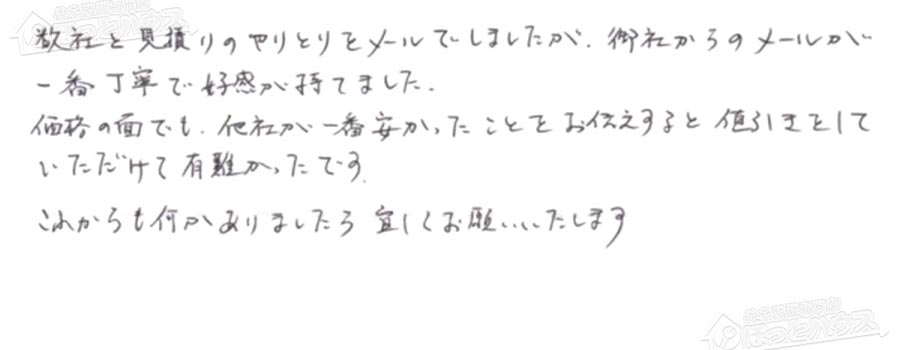 数社と見積りのやりとりをメールでしましたが、御社からのメールが
一番丁寧で好感が持てました。
価格の面でも、他社が一番安かったことをお伝えすると値引きをして
いただけて有難かったです。
これからも何かありましたら宜しくお願いいたします
ほっとハウス